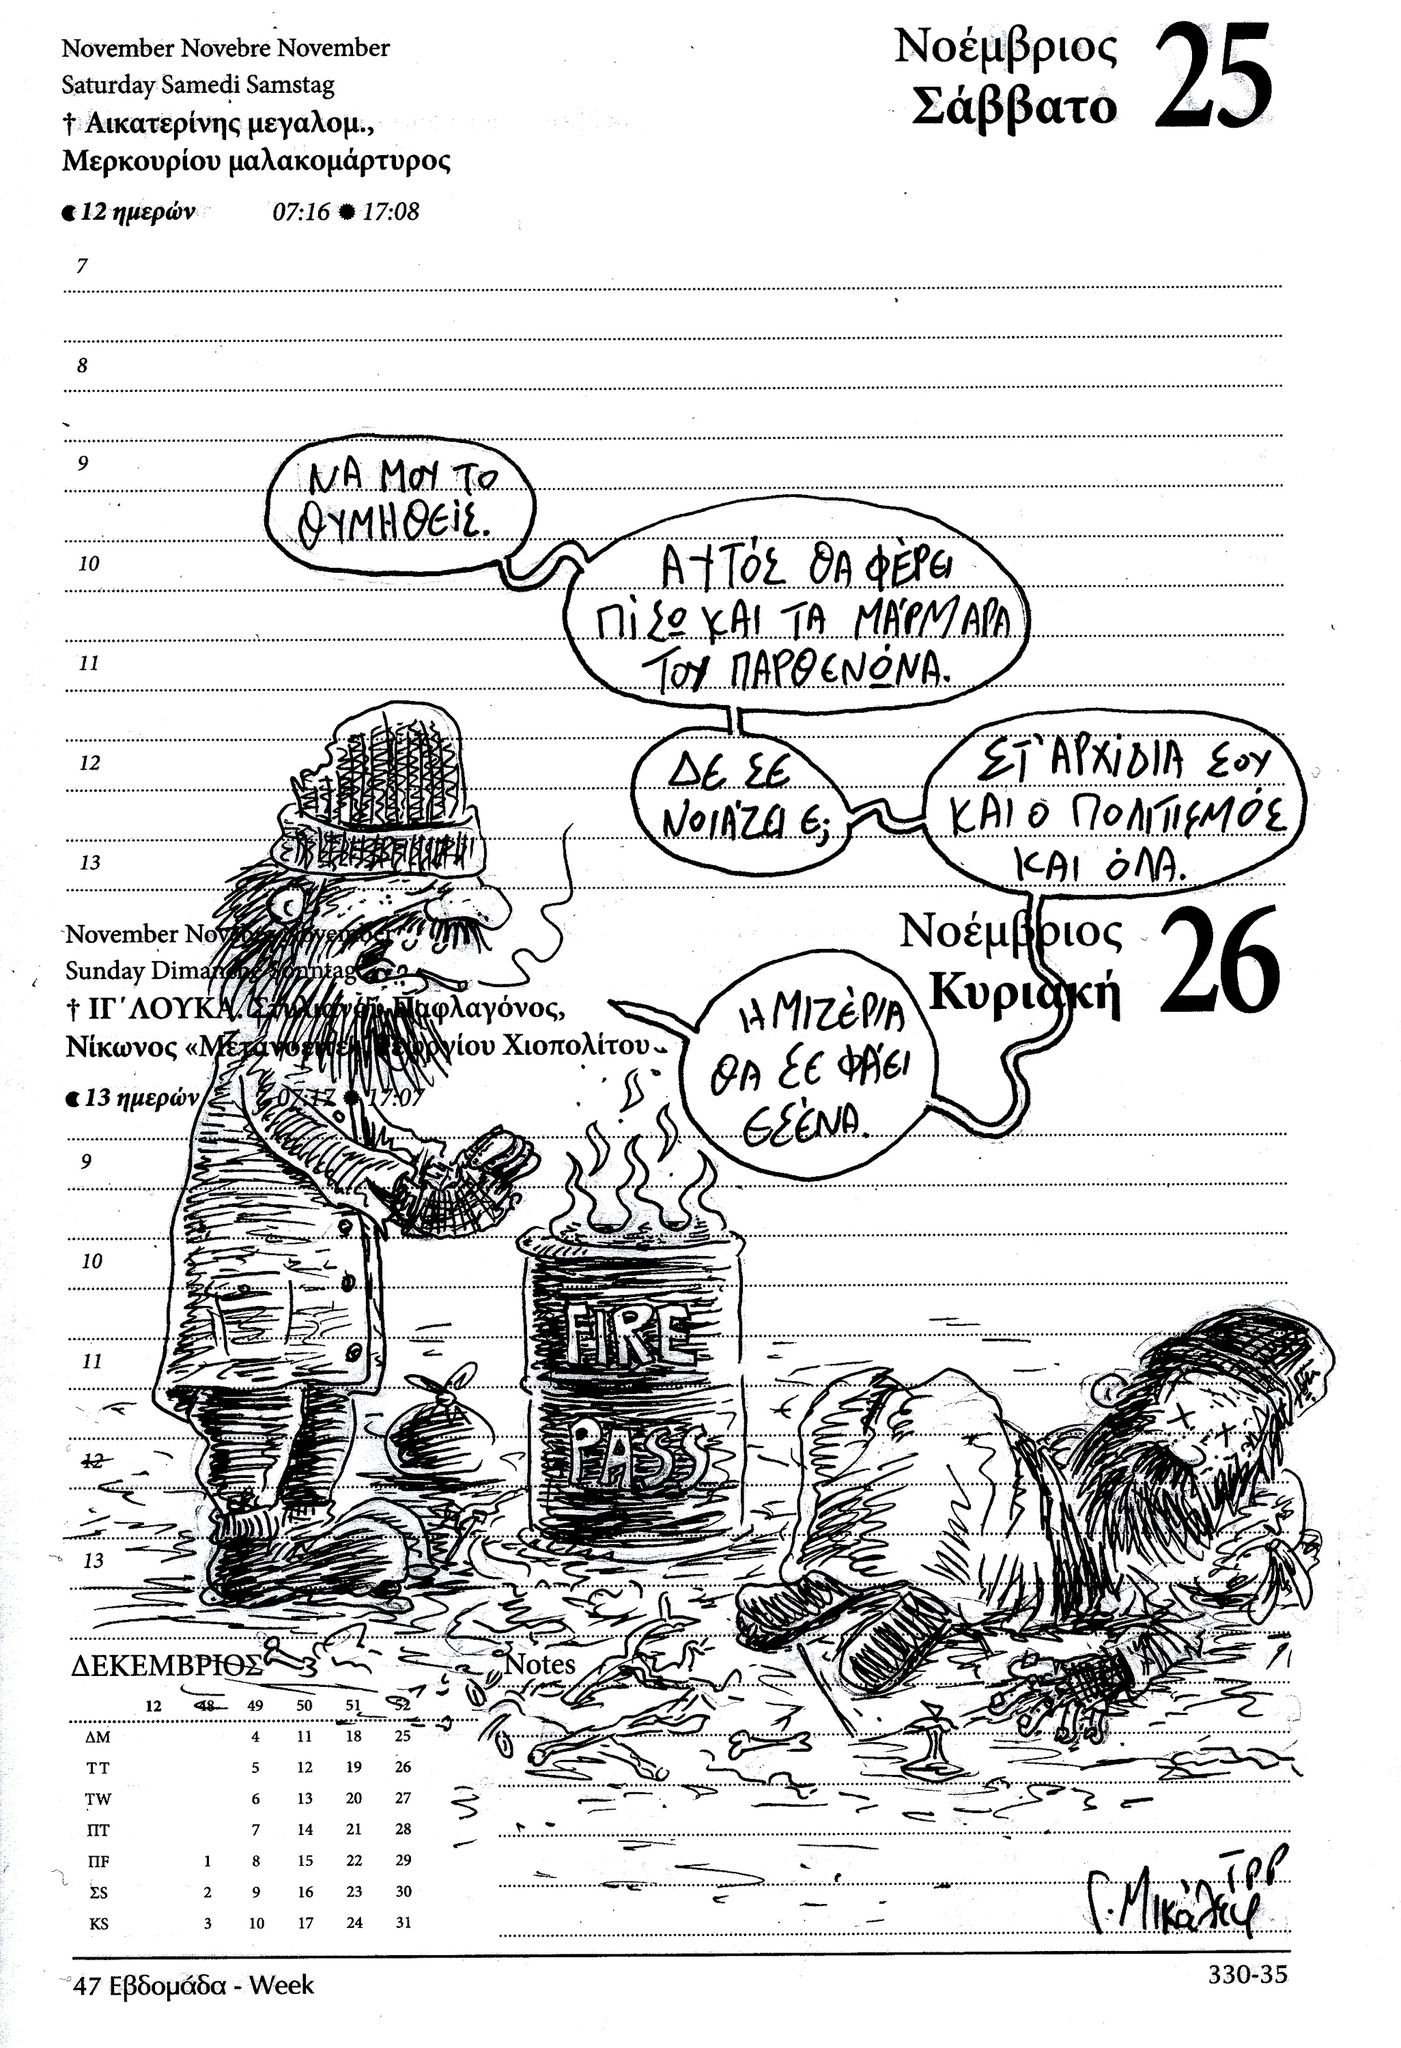 November Novebre November
Saturday Samedi Samstag
† Αικατερίνης μεγαλομ.,
Μερκουρίου μαλακομάρτυρος
12 ημερών 07:16 17:08
Νοέμβριος
Σάββατο
25
7
8
9
10
11
12
13
ΝΑ ΜΟΥ ΤΟ
ΘΥΜΗΘΕΙΣ.
ΑΥΤΌΣ ΘΑ ΦΈΡΕΙ
ΠΊΣΩ ΚΑΙ ΤΑ ΜΆΡΜΑΡΑ
ΤΟΥ ΠΑΡΘΕΝΏΝΑ.
ΔΕ ΣΕ
ΝΟΙΆΖΕΙ Ε;
ΣΤ' ΑΡΧΊΔΙΑ ΣΟΥ
ΚΑΙ Ο ΠΟΛΙΤΙΣΜΌΣ
ΚΑΙ ΌΛΑ.
Η ΜΙΖΈΡΙΑ
ΘΑ ΣΕ ΦΆΕΙ
ΕΣΈΝΑ.
November Novebre November
Sunday Dimanche Sonntag
† ΙΓ΄ ΛΟΥΚΑ. Στυλιανού Παφλαγόνος,
Νίκωνος «Μετανοείτε», Γεωργίου Χιοπολίτου
13 ημερών 07:17 17:07
Νοέμβριος
Κυριακή
26
9
10
11
12
13
FIRE
PASS
ΔΕΚΕΜΒΡΙΟΣ
12 48 49 50 51 52
ΔΜ 4 11 18 25
ΤΤ 5 12 19 26
ΤW 6 13 20 27
ΠΤ 7 14 21 28
ΠF 1 8 15 22 29
ΣS 2 9 16 23 30
ΚS 3 10 17 24 31
Notes
47 Εβδομάδα - Week
330-35